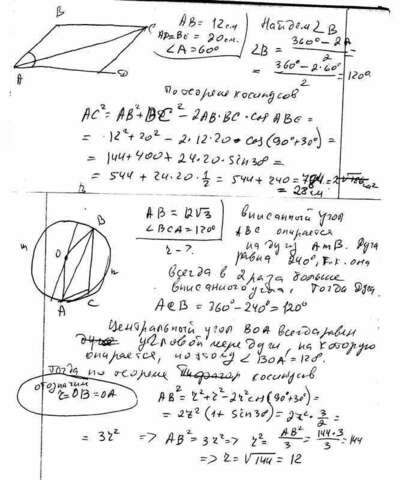 B
C
A
D
AB = 12 см
AD = BC = 20 см.
∠A = 60°
Найдем ∠B
∠B = (360° - 2A)/2 =
= (360° - 2·60°)/2 = 120°
По теореме косинусов
AC² = AB² + BC² - 2AB·BC·cos ABC =
= 12² + 20² - 2·12·20·cos(90°+30°) =
= 144 + 400 + 24·20·sin30° =
= 544 + 24·20·1/2 = 544 + 240 = 784
= 28 см
n
m
B
O
n
A
C
AB = 12√3
∠BCA = 120°
r - ?
вписанный угол
ABC опирается
на дугу AmB. Дуга
равна 240°, т.к. она
всегда в 2 раза больше
вписанного угла, тогда дуга
ACB = 360° - 240° = 120°
Центральный угол BOA всегда равен
угловой мере дуги, на которую
опирается, поэтому ∠BOA = 120°.
Тогда по теореме косинусов
обозначим
r = OB = OA
AB² = r² + r² - 2r² cos(90°+30°) =
= 2r²(1 + sin30) = 2r²·3/2 =
= 3r² => AB² = 3r² => r² = AB²/3 = 144·3/3 = 144
=> r = √144 = 12